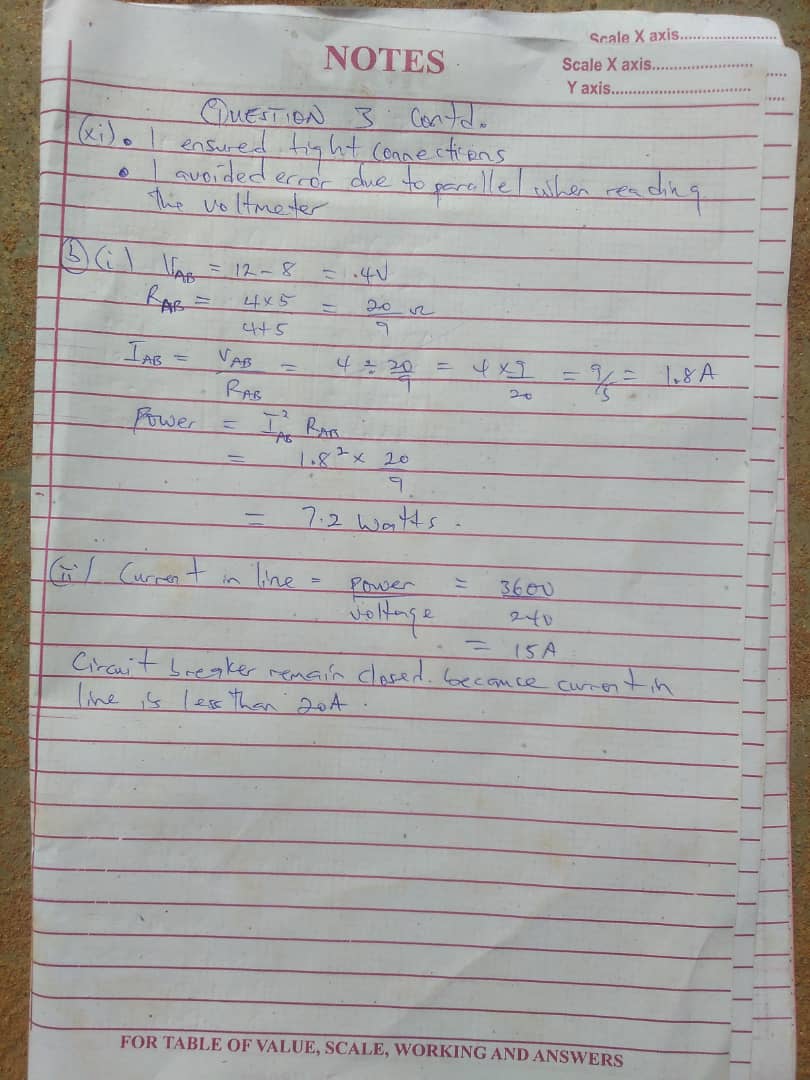 Scale X axis......................
NOTES
Scale X axis.......................
Y axis................................
QUESTION 3 Contd.
(xi) • I ensured tight Connections
• I avoided error due to parallel when reading
the voltmeter
(b) (i) V_AB = 12 - 8 = .4V
R_AB = 4x5 = 20 Ω
4+5 9
I_AB = V_AB = 4 ÷ 20 = 4 x 9 = 9/5 = 1.8A
R_AB 9 20
Power = I²_AB R_AB
= 1.8² x 20
9
= 7.2 Watts.
(ii) Current in line = Power = 3600
Voltage 240
= 15A
Circuit breaker remain closed. because current in
line is less than 20A.
FOR TABLE OF VALUE, SCALE, WORKING AND ANSWERS